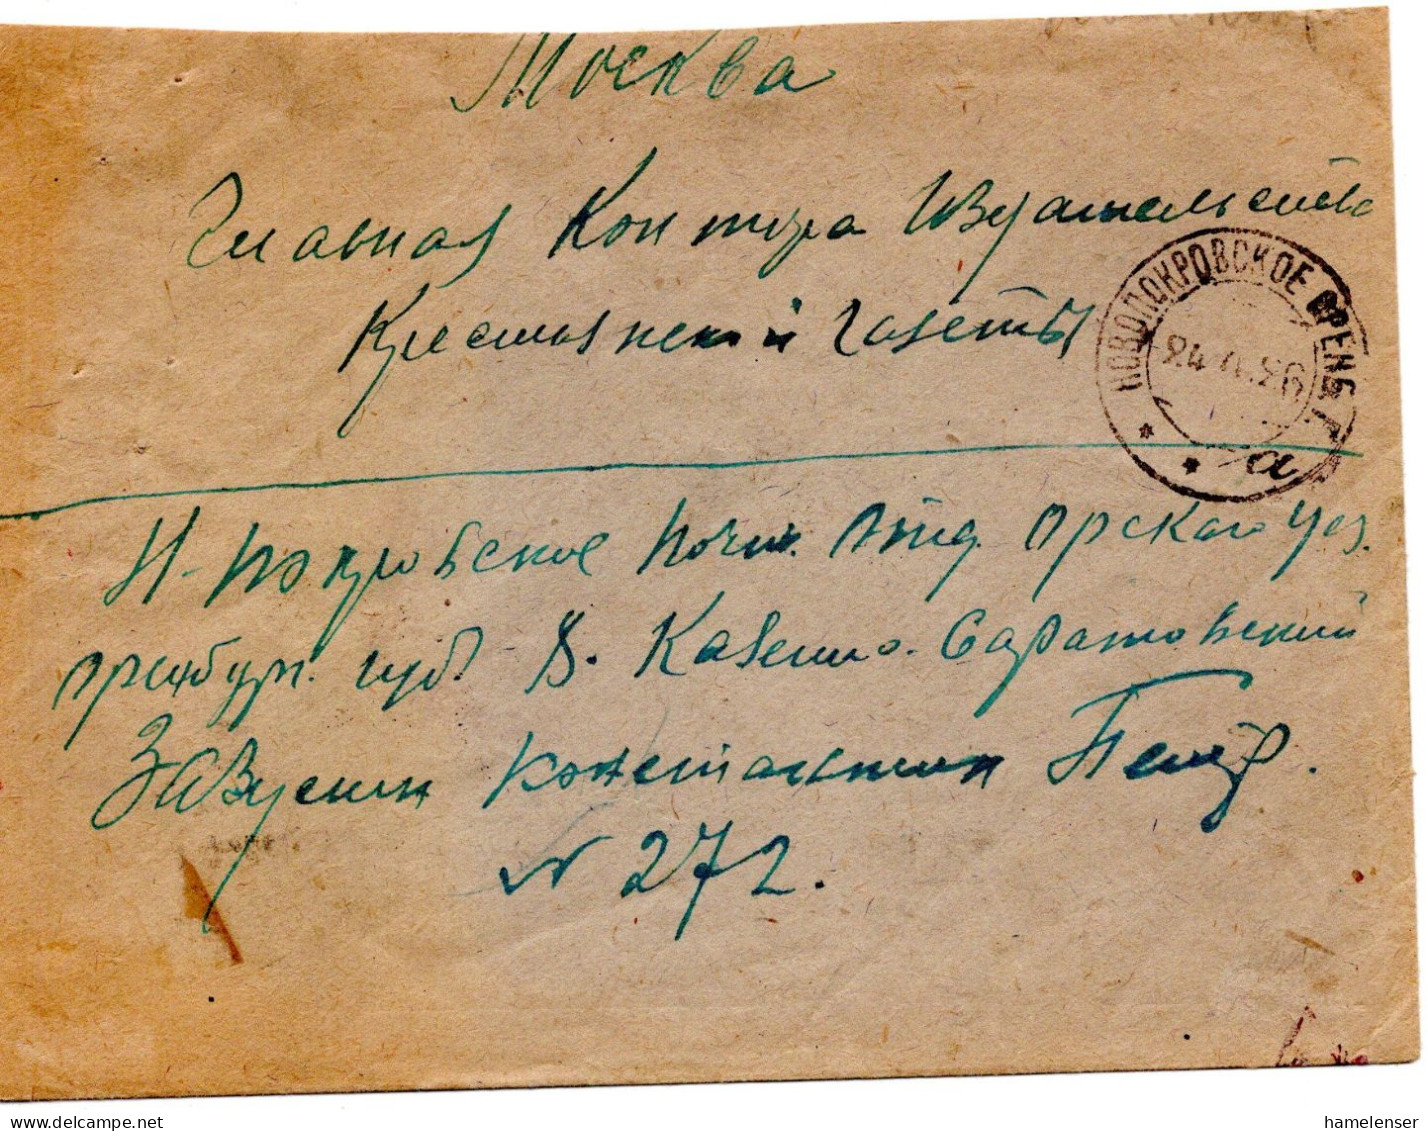 Москва
Главная Контора Издательства
Крестьянской газеты
НОВОПОКРОВСКОЕ ОРЕНБ. Г.
24.4.26
* * а
Н-Покровское Почт. Отд. Орского уез.
Оренбург. губ. В. Казенно-Саратовский
Завускин Констаньтин Петр.
N 272.
www.delcampe.net
hamelenser